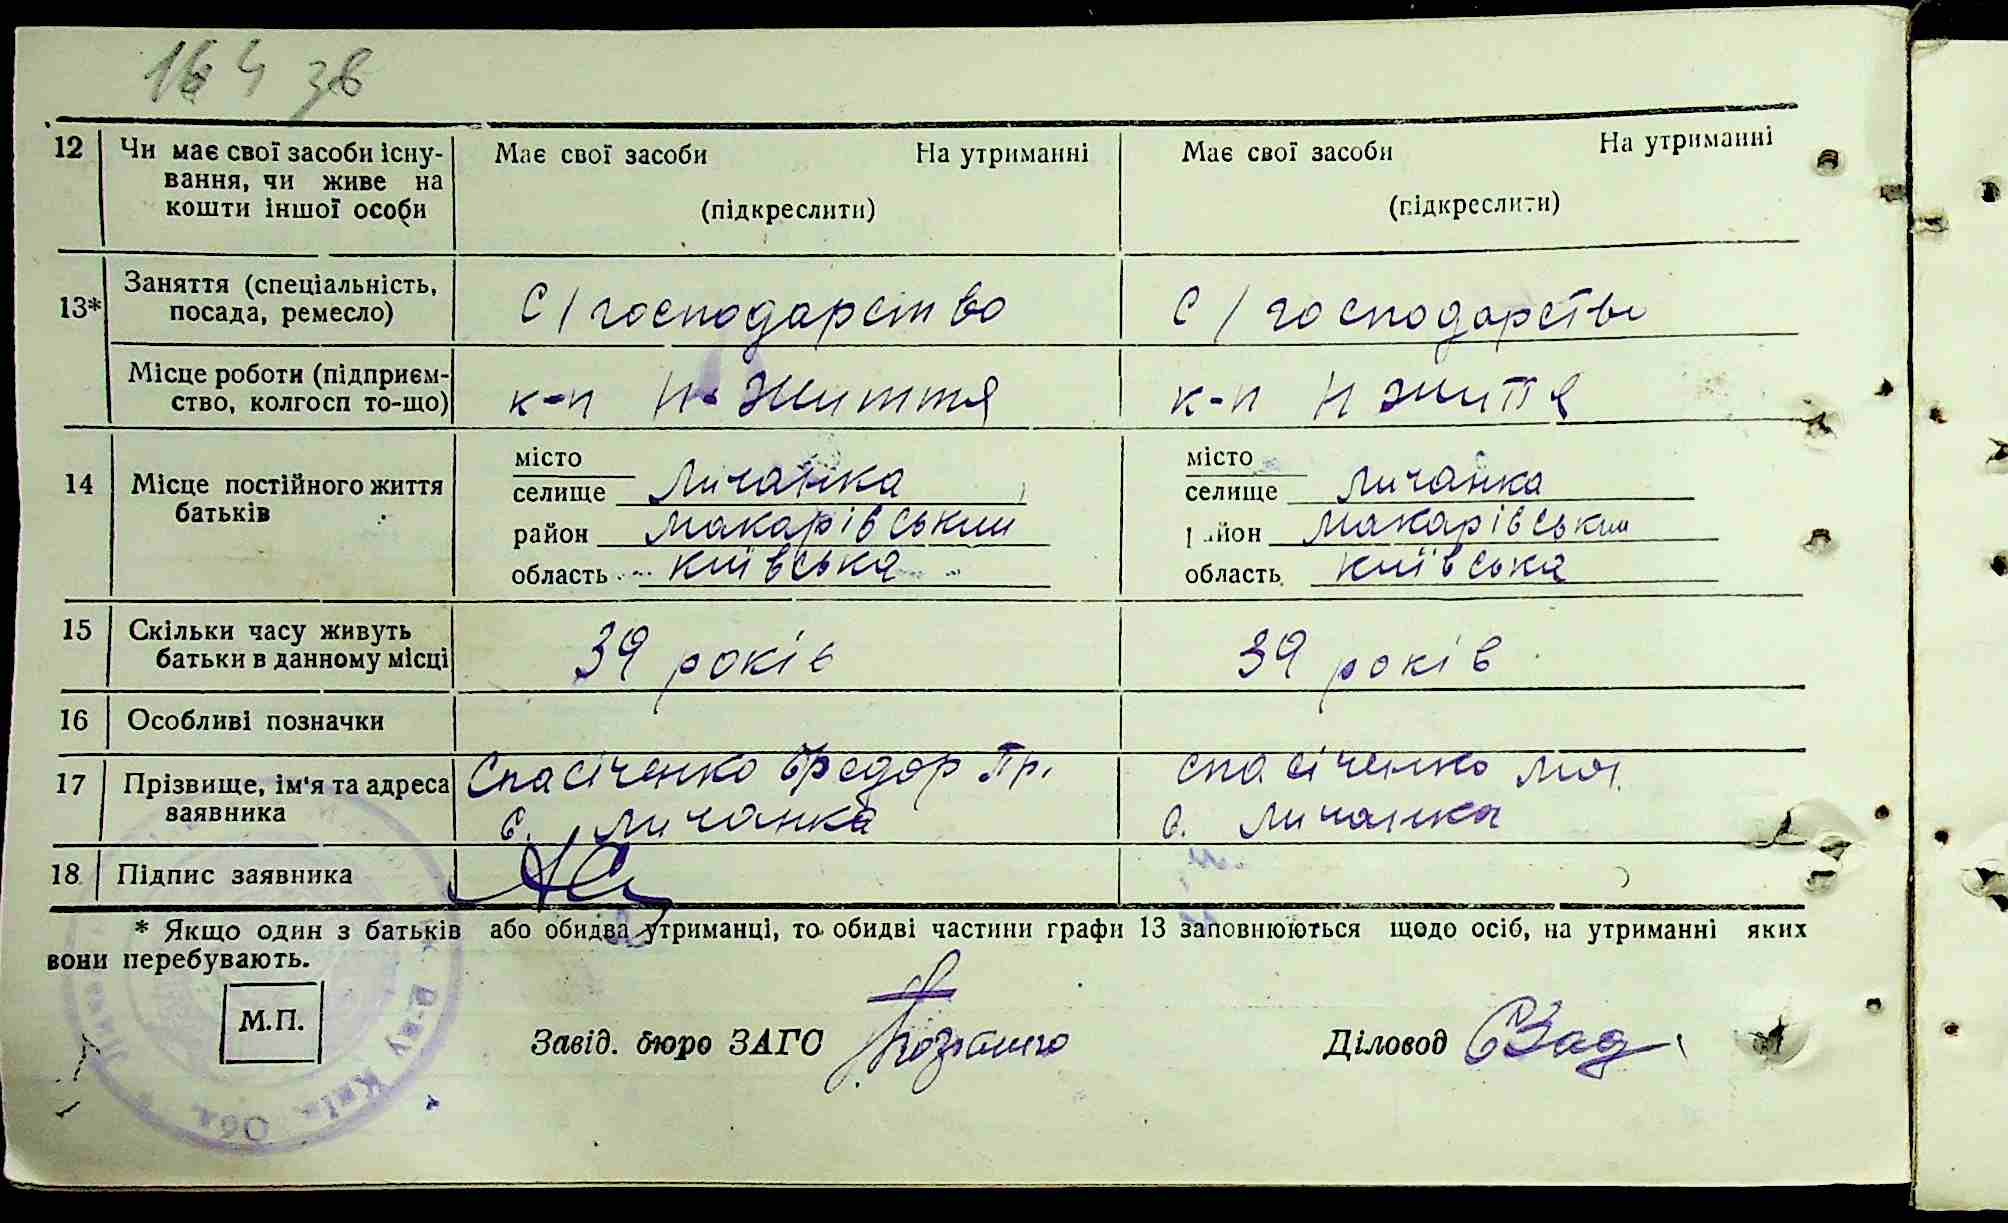 164 зв
12 Чи має свої засоби існу- Має свої засоби На утриманні Має свої засоби На утриманні
вання, чи живе на
кошти іншої особи (підкреслити) (підкреслити)
13* Заняття (спеціальність, С/господарство С/господарство
посада, ремесло)
Місце роботи (підприєм- к-п Н-Життя к-п Н Життя
ство, колгосп то-що)
14 Місце постійного життя місто місто
батьків селище Личанка селище Личанка
район Макарівський район Макарівський
область Київська область Київська
15 Скільки часу живуть 39 років 39 років
батьки в данному місці
16 Особливі позначки
17 Прізвище, ім'я та адреса Спасіченко Федор Пр. Спасіченко
заявника с. Личанка с. Личанка
18 Підпис заявника
* Якщо один з батьків або обидва утриманці, то обидві частини графи 13 заповнюються щодо осіб, на утриманні яких
вони перебувають.
М.П. Завід. бюро ЗАГС Діловод
р-ну Київ. Обл.